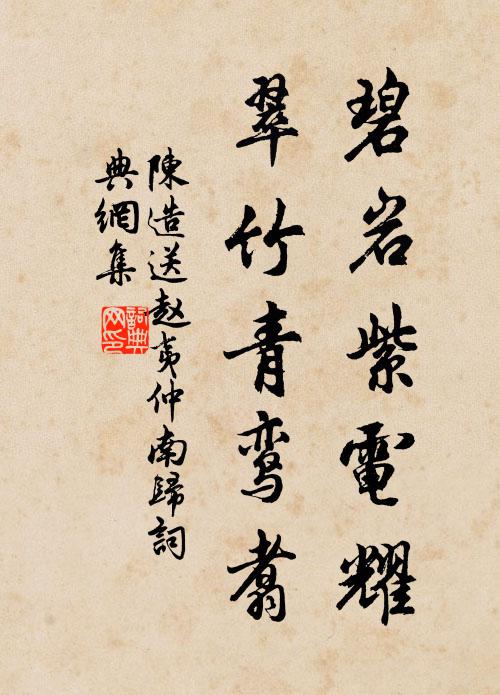 碧岩紫電耀
翠竹青鸾翥
陳造送赵夷仲南歸詞
典網集
詞典
网印